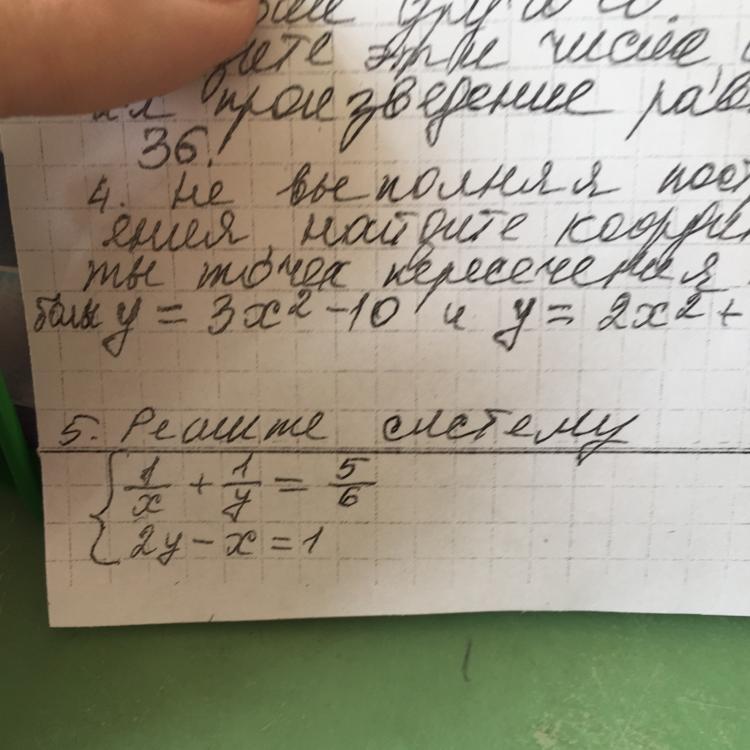 эти числа
произведение рав
36.
4. Не выполняя пост
ения, найдите коорди
ты точек пересечения
болы y = 3x² - 10 и y = 2x² +
5. Решите систему
{ 1/x + 1/y = 5/6
2y - x = 1